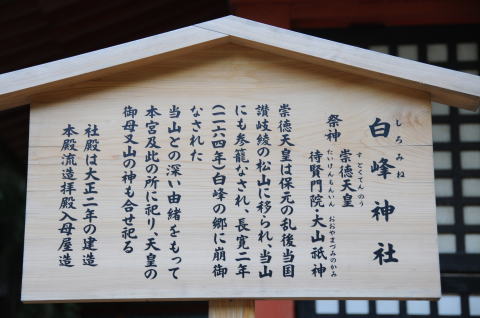 しろみね
白峰神社
すとくてんのう
祭神 崇徳天皇
たいけんもんいん おおやまづみのかみ
待賢門院・大山祇神
崇徳天皇は保元の乱後当国
讃岐綾の松山に移られ、当山
にも参籠なされ、長寛二年
(一一六四年)白峰の郷に崩御
なされた
当山との深い由緒をもって
本宮及此の所に祀り、天皇の
御母又山の神も合せ祀る
社殿は大正二年の建造
本殿流造拝殿入母屋造